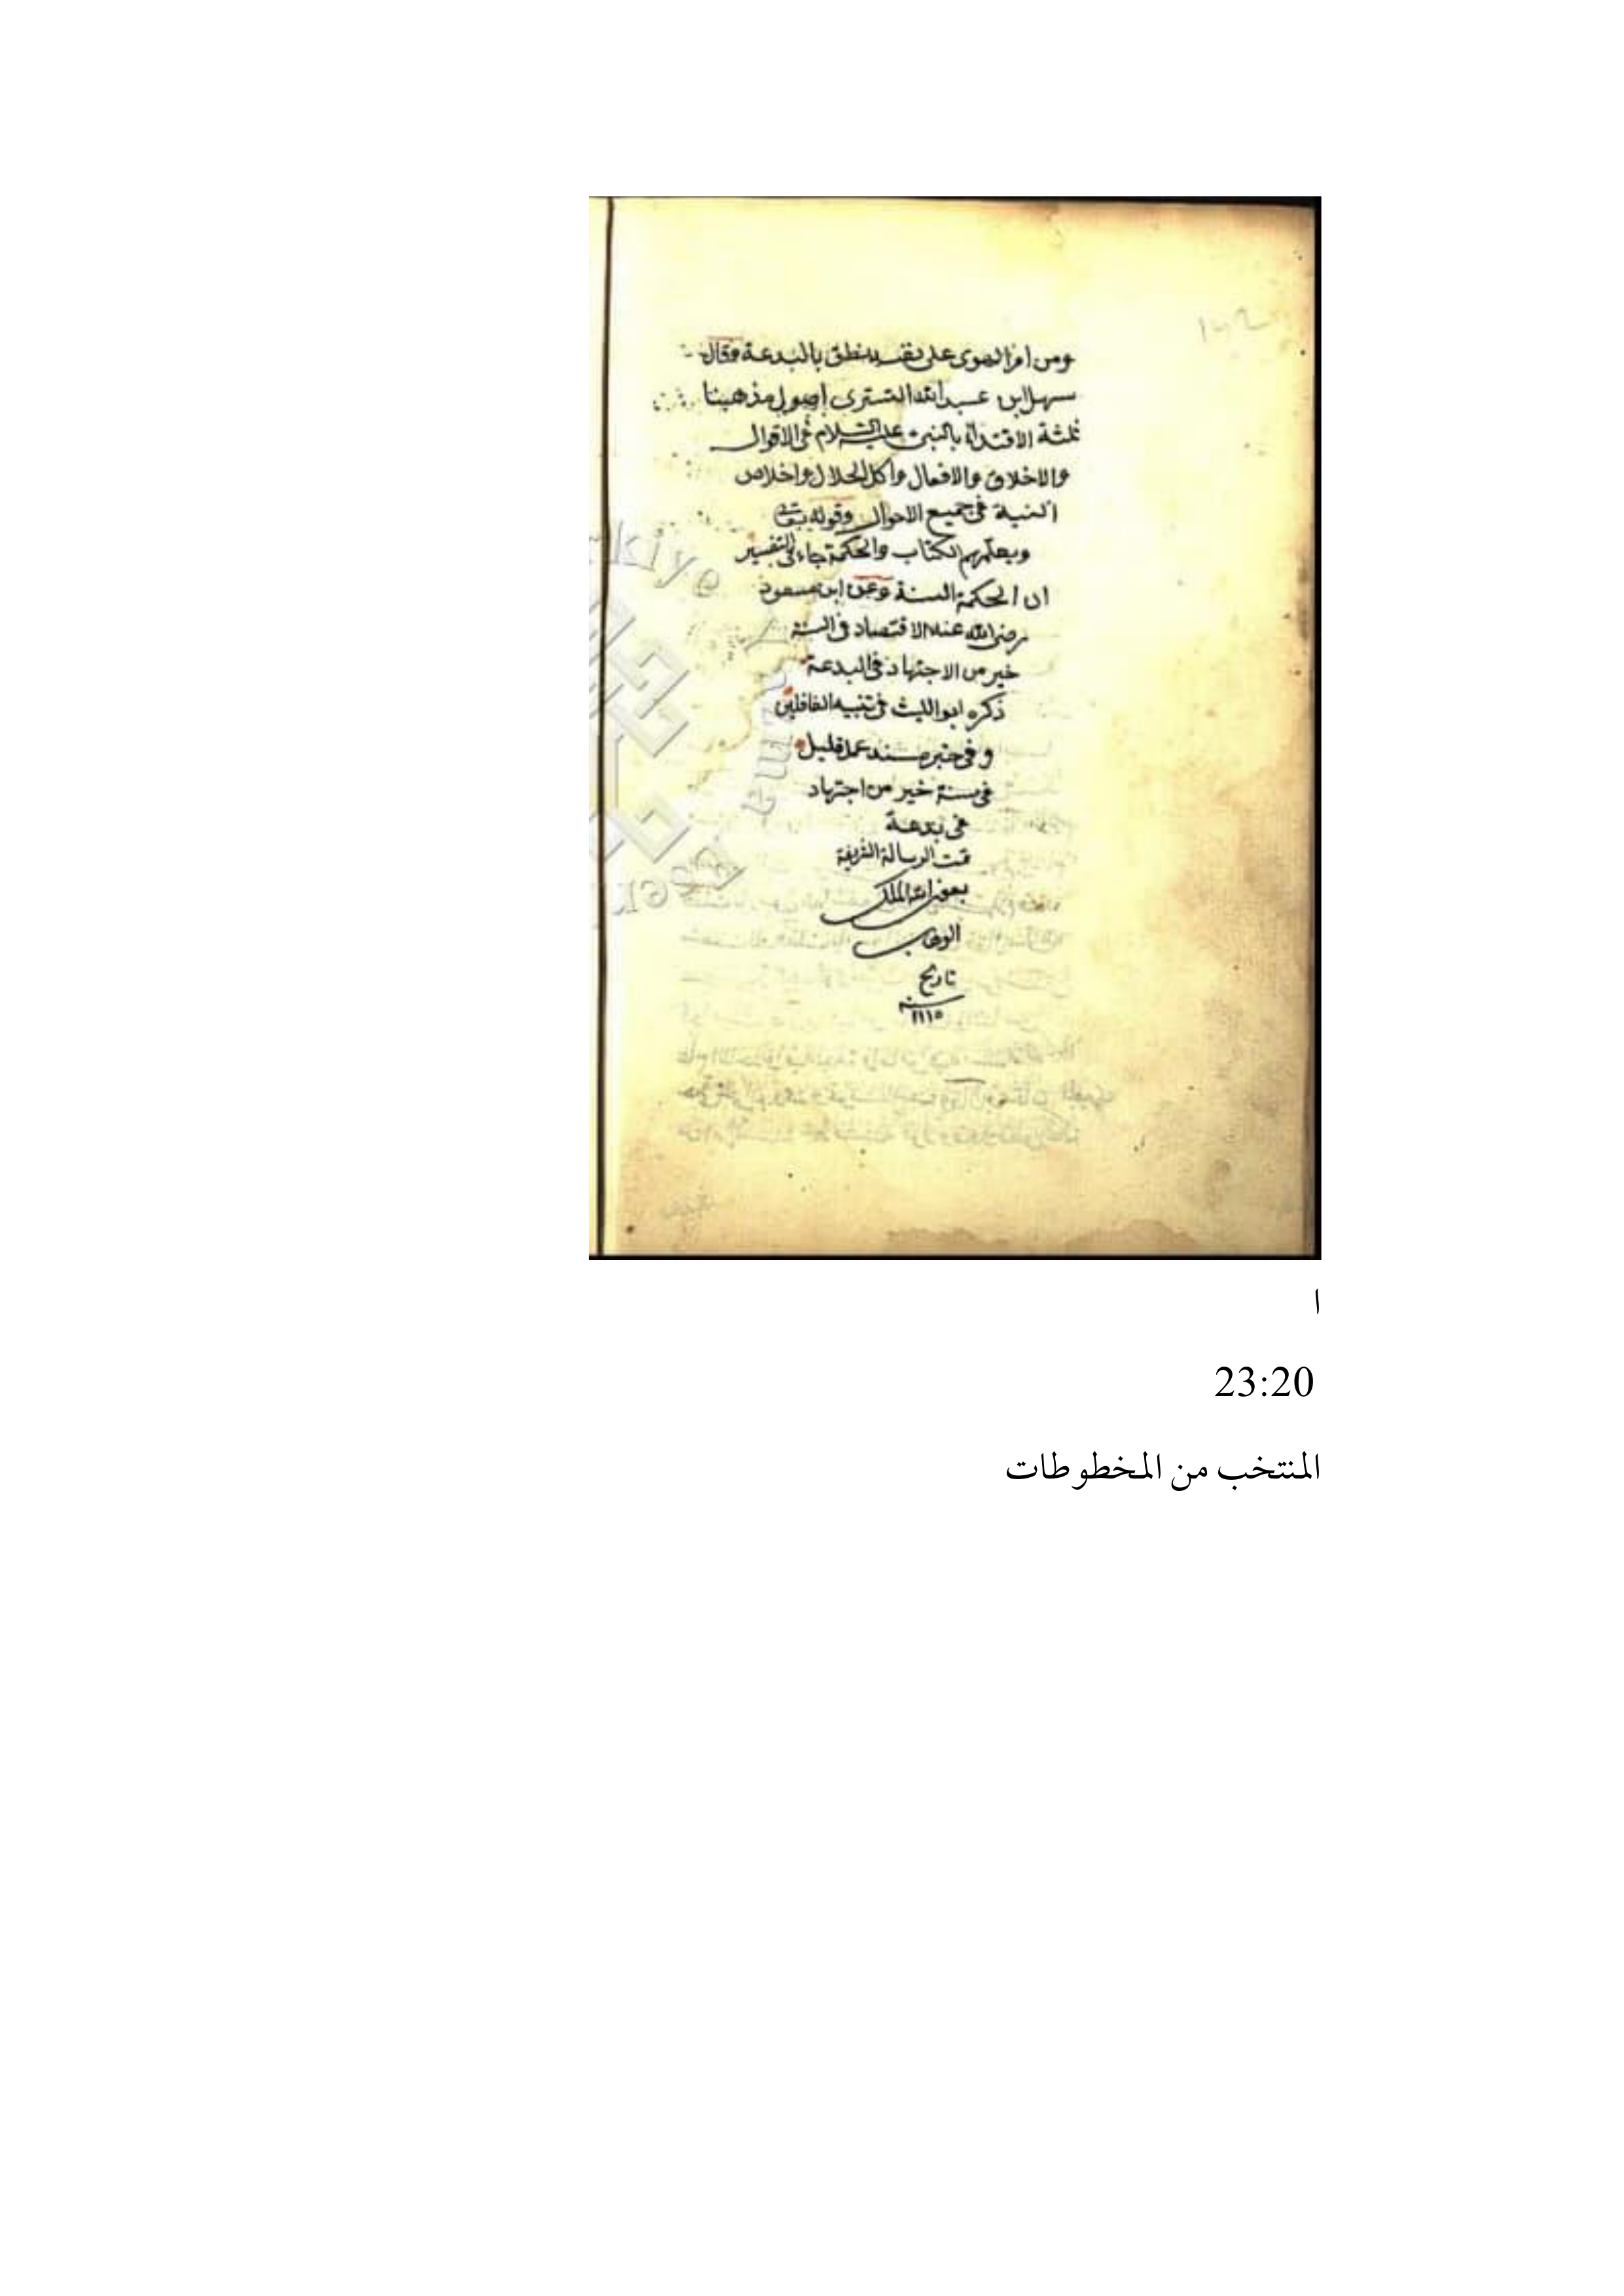 ومن امر الهوى على نفسه ينطق بالبدعة وقال
سهل ابن عبد الله التسترى اصول مذهبنا
ثلثة الاقتداء بالنبى عليه السلام فى الاقوال
والاخلاق والافعال واكل الحلال واخلاص
النية فى جميع الاحوال وقوله تعالى
ويعلمهم الكتاب والحكمة جاء فى التفسير
ان الحكمة السنة وعن ابن مسعود
رضى الله عنه الاقتصاد فى السنة
خير من الاجتهاد فى البدعة
ذكره ابو الليث فى تنبيه الغافلين
و فى خبر مسند عمل قليل
فى سنة خير من اجتهاد
فى بدعة
تمت الرسالة الشريفة
بعون الله الملك
الوهاب
تاريخ
سنه
١١١٥
ا
23:20
المنتخب من المخطوطات